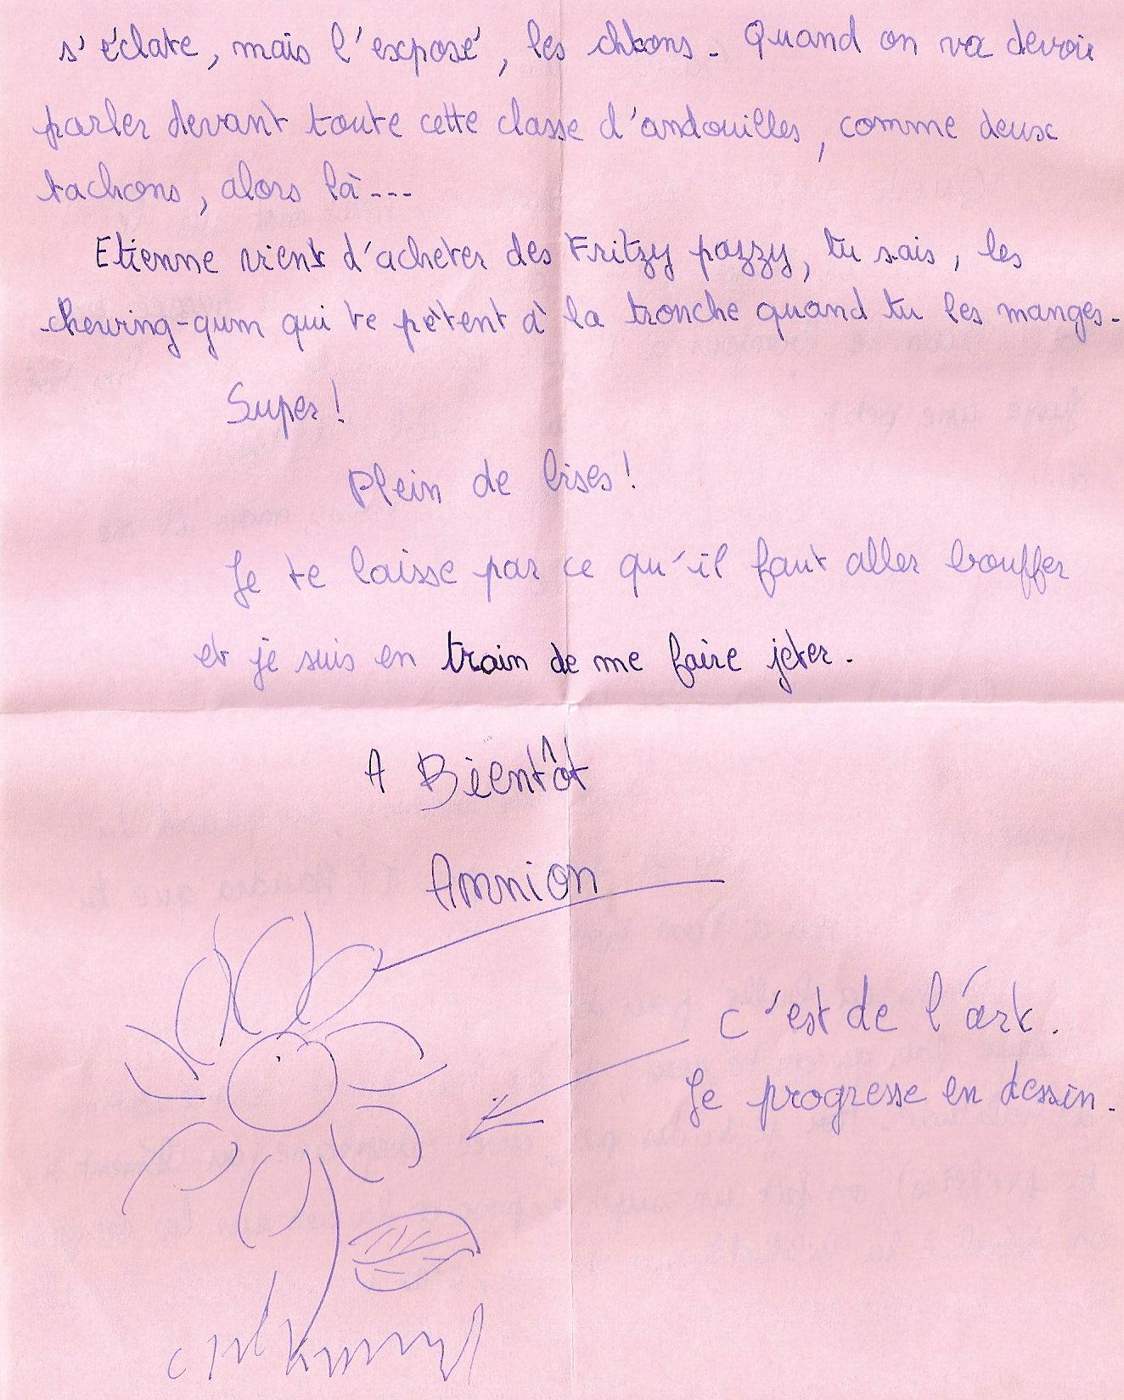 s'éclate, mais l'exposé, les chbons. Quand on va devoir
parler devant toute cette classe d'andouilles, comme deux
tachons, alors là---
Etienne vient d'acheter des Fritzy pazzy, tu sais, les
chewing-gum qui te pètent à la tronche quand tu les manges.
Super!
Plein de bises!
Je te laisse par ce qu'il faut aller bouffer
et je suis en train de me faire jeter.
A Bientôt
Amnion
c'est de l'árt.
Je progresse en dessin.